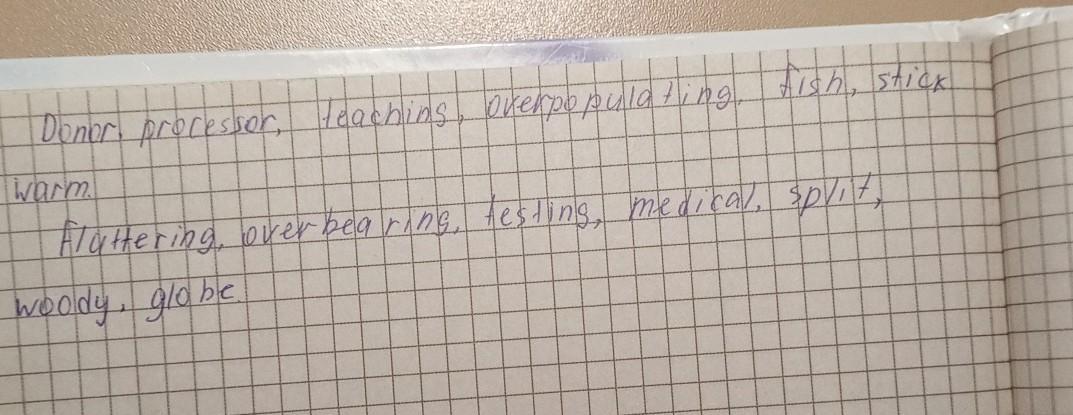 Donor, processor, teaching, overpopulating, fish, stick
warm.
Flattering, overbearing, testing, medical, split,
woody, globe.